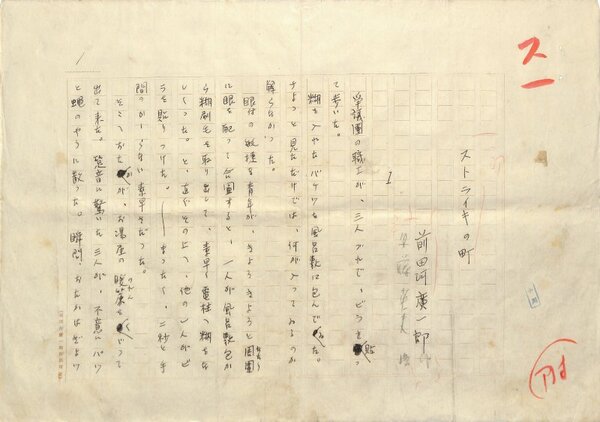 ス一
ストライキの町
前田河廣一郎
1
爭議團の職工が、三人づれで、ビラを貼っ
て歩いた。
糊を入れたバケツを風呂敷に包んで
ちょっと見ただけでは、何が入ってゐるのか
解らなかった。
眼付の敏捷な青年が、きょろきょろと周圍
に眼を配って合圖すると、一人が風呂敷包か
ら糊刷毛を取り出して、素早く電柱へ糊をな
しくった。と、直ぐその上へ、他の一人がビ
ラを貼りつけた。——まったく、二秒と手
間のかゝらない素早さだった。
そこへおたかが、お湯屋の暖簾を
のれん
出て来た。跫音に驚いた三人が、不意にパッ
と蠅のやうに散った。瞬間、おたかはぎょッ
1